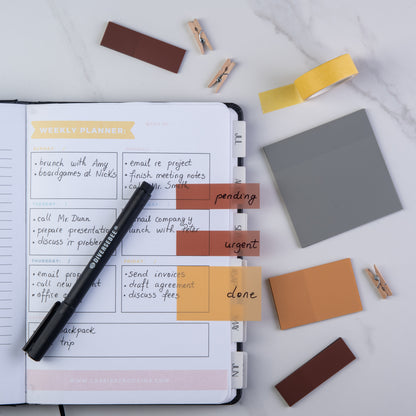 WEEKLY PLANNER:
• brunch with Amy
• boardgames at Nick's
• email re project
• finish meeting notes
• call Mr. Smith
pending
• call Mr. Dunn
• prepare presentation
• discuss
• email company
• lunch with Peter
urgent
• email
• call new
• office
• send invoices
• draft agreement
• discuss fees
done
backpack
trip
DIVERSEBEE
JUL
JUN